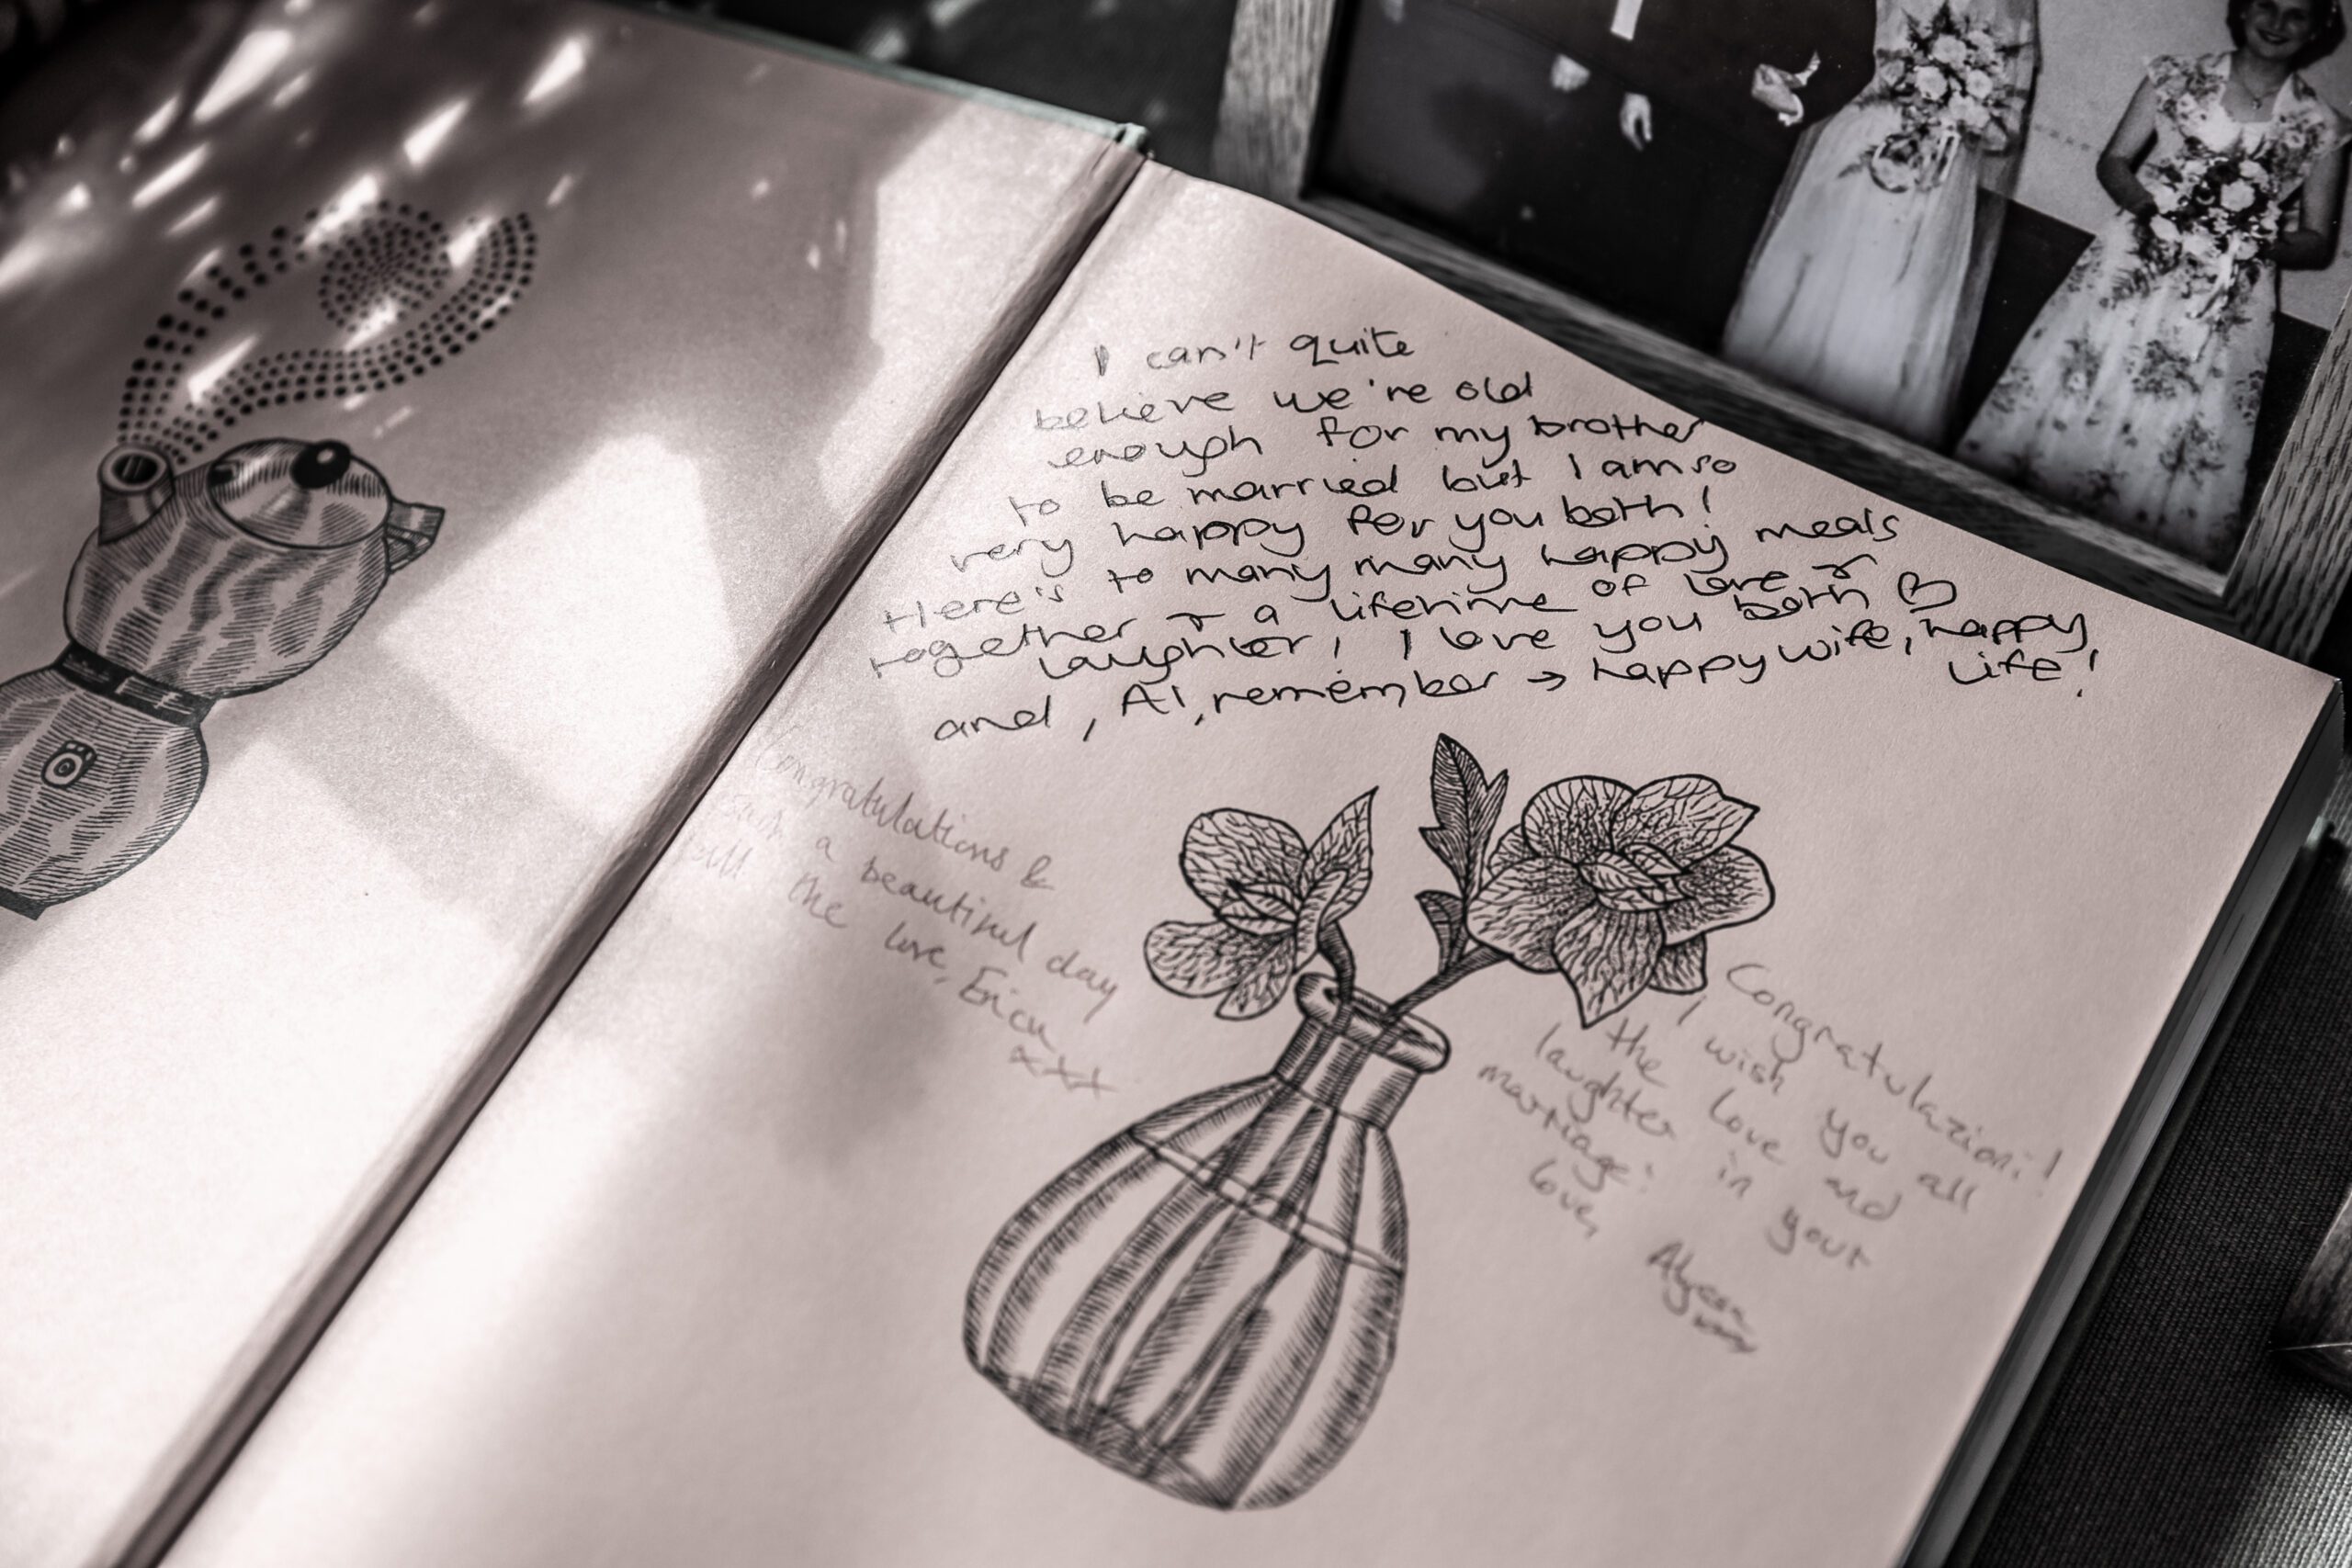 I can't quite
believe we're old
enough for my brother
to be married but I am so
very happy for you both!
Here's to many many happy meals
together & a lifetime of love &
laughter! I love you both ♡
and, Al, remember → happy wife, happy
life!
Congratulations &
such a beautiful day
all the love, Erica
xxx
Congratulazioni!
I wish you all
the love and
laughter in your
marriage!
love,